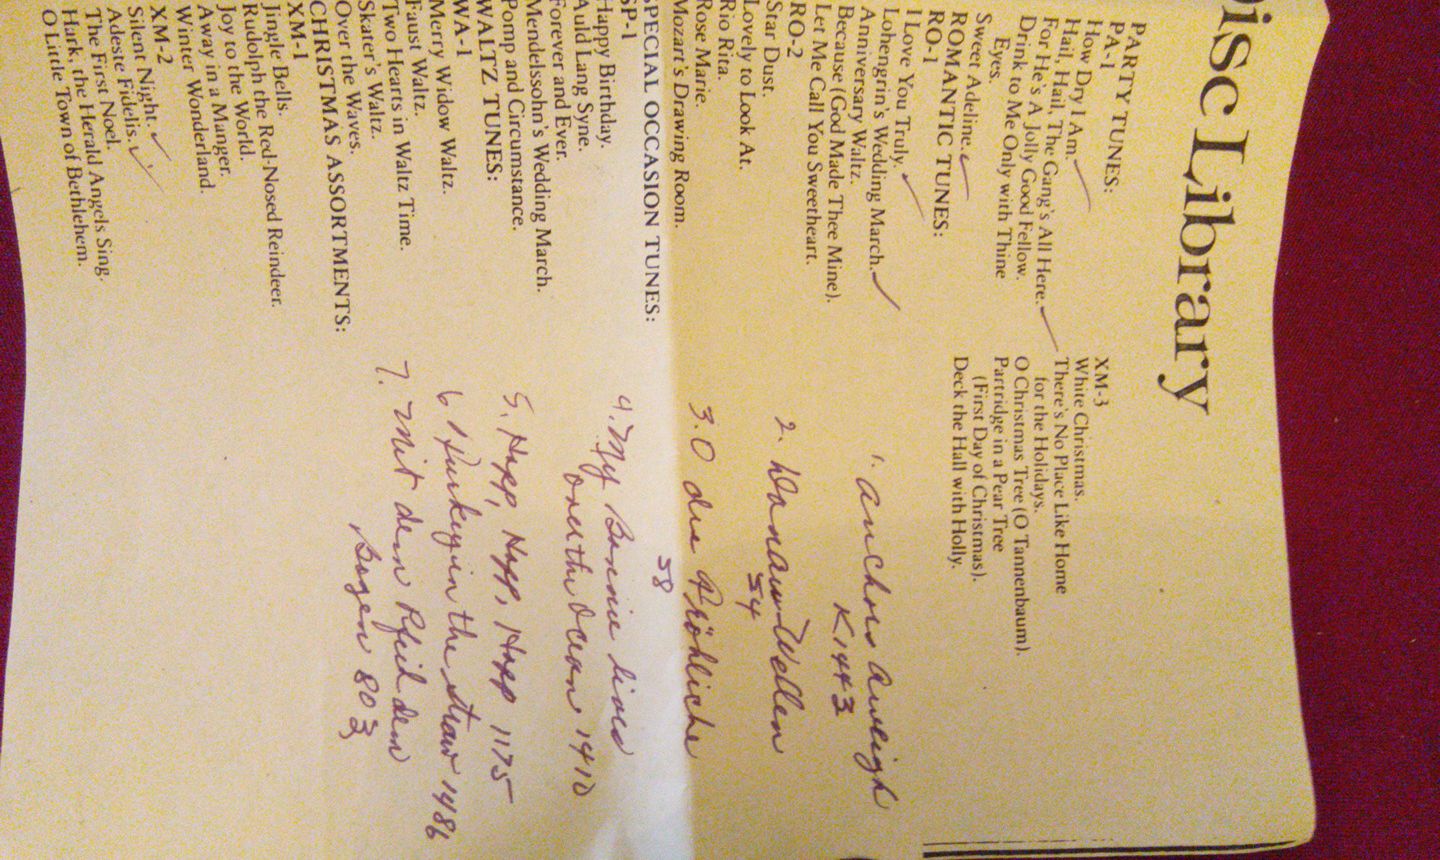 Disc Library
PARTY TUNES:
PA-1
How Dry I Am.
Hail, Hail, The Gang's All Here.
For He's A Jolly Good Fellow.
Drink to Me Only with Thine
Eyes.
Sweet Adeline.
ROMANTIC TUNES:
RO-1
I Love You Truly.
Lohengrin's Wedding March.
Anniversary Waltz.
Because (God Made Thee Mine).
Let Me Call You Sweetheart.
RO-2
Star Dust.
Lovely to Look At.
Rio Rita.
Rose Marie.
Mozart's Drawing Room.
SPECIAL OCCASION TUNES:
SP-1
Happy Birthday.
Auld Lang Syne.
Forever and Ever.
Mendelssohn's Wedding March.
Pomp and Circumstance.
WALTZ TUNES:
WA-1
Merry Widow Waltz.
Faust Waltz.
Two Hearts in Waltz Time.
Skater's Waltz.
Over the Waves.
CHRISTMAS ASSORTMENTS:
XM-1
Jingle Bells.
Rudolph the Red-Nosed Reindeer.
Joy to the World.
Away in a Manger.
Winter Wonderland.
XM-2
Silent Night.
Adeste Fidelis.
The First Noel.
Hark, the Herald Angels Sing.
O Little Town of Bethlehem.
XM-3
White Christmas.
There's No Place Like Home
for the Holidays.
O Christmas Tree (O Tannenbaum).
Partridge in a Pear Tree
(First Day of Christmas).
Deck the Hall with Holly.
1. Anchors Aweigh
K1443
2. Donau Wellen
54
3. O du Fröhliche
58
4. My Bonnie lives
over the Ocean 1410
5. Hopp, Hopp, Hopp 1175
6 Turkey in the straw 1486
7. Mit dem Pfeil dem
Bogen 803